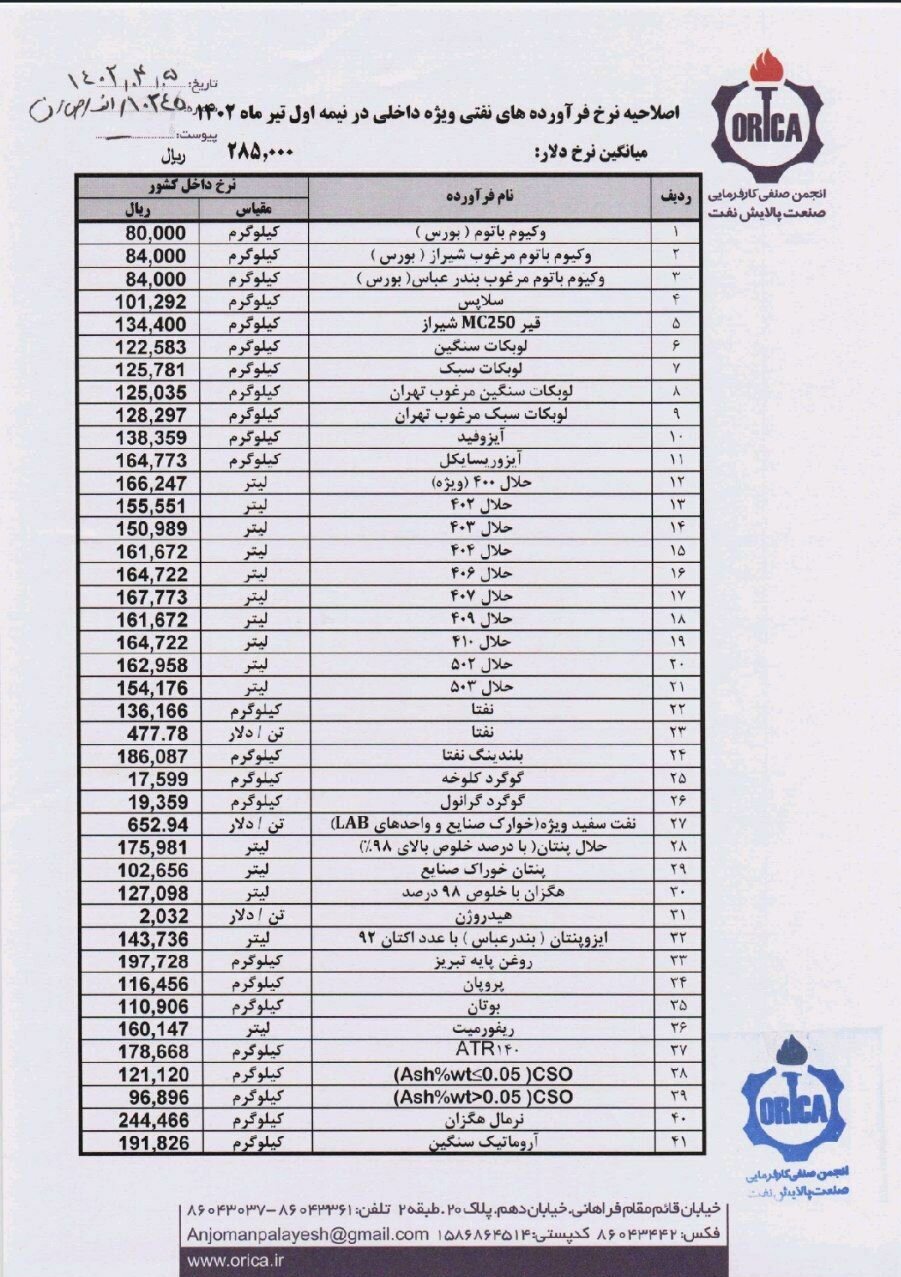 تاریخ: ۱۴۰۲,۴,۵
پیوست:
ORICA
انجمن صنفی کارفرمایی
صنعت پالایش نفت
اصلاحیه نرخ فرآورده های نفتی ویژه داخلی در نیمه اول تیر ماه ۱۴۰۲
میانگین نرخ دلار: ۲۸۵,۰۰۰ ریال
ردیف نام فرآورده نرخ داخل کشور
مقیاس ریال
۱ وکیوم باتوم ( بورس ) کیلوگرم 80,000
۲ وکیوم باتوم مرغوب شیراز ( بورس ) کیلوگرم 84,000
۳ وکیوم باتوم مرغوب بندر عباس( بورس ) کیلوگرم 84,000
۴ سلاپس کیلوگرم 101,292
۵ قیر MC250 شیراز کیلوگرم 134,400
۶ لوبکات سنگین کیلوگرم 122,583
۷ لوبکات سبک کیلوگرم 125,781
۸ لوبکات سنگین مرغوب تهران کیلوگرم 125,035
۹ لوبکات سبک مرغوب تهران کیلوگرم 128,297
۱۰ آیزوفید کیلوگرم 138,359
۱۱ آیزوریسایکل کیلوگرم 164,773
۱۲ حلال ۴۰۰ (ویژه) لیتر 166,247
۱۳ حلال ۴۰۲ لیتر 155,551
۱۴ حلال ۴۰۳ لیتر 150,989
۱۵ حلال ۴۰۴ لیتر 161,672
۱۶ حلال ۴۰۶ لیتر 164,722
۱۷ حلال ۴۰۷ لیتر 167,773
۱۸ حلال ۴۰۹ لیتر 161,672
۱۹ حلال ۴۱۰ لیتر 164,722
۲۰ حلال ۵۰۲ لیتر 162,958
۲۱ حلال ۵۰۳ لیتر 154,176
۲۲ نفتا کیلوگرم 136,166
۲۳ نفتا تن / دلار 477.78
۲۴ بلندینگ نفتا کیلوگرم 186,087
۲۵ گوگرد کلوخه کیلوگرم 17,599
۲۶ گوگرد گرانول کیلوگرم 19,359
۲۷ نفت سفید ویژه(خوراک صنایع و واحدهای LAB) تن / دلار 652.94
۲۸ حلال پنتان( با درصد خلوص بالای ۹۸٪) لیتر 175,981
۲۹ پنتان خوراک صنایع لیتر 102,656
۳۰ هگزان با خلوص ۹۸ درصد لیتر 127,098
۳۱ هیدروژن تن / دلار 2,032
۳۲ ایزوپنتان ( بندرعباس ) با عدد اکتان ۹۲ لیتر 143,736
۳۳ روغن پایه تبریز کیلوگرم 197,728
۳۴ پروپان کیلوگرم 116,456
۳۵ بوتان کیلوگرم 110,906
۳۶ ریفورمیت لیتر 160,147
۳۷ ATR۱۴۰ کیلوگرم 178,668
۳۸ (Ash%wt≤0.05 )CSO کیلوگرم 121,120
۳۹ (Ash%wt>0.05 )CSO کیلوگرم 96,896
۴۰ نرمال هگزان کیلوگرم 244,466
۴۱ آروماتیک سنگین کیلوگرم 191,826
ORICA
انجمن صنفی کارفرمایی
صنعت پالایش نفت
خیابان قائم مقام فراهانی.خیابان دهم. پلاک ۲۰.طبقه۲ تلفن: ۸۶۰۴۳۳۶۱-۸۶۰۴۳۰۳۷
فکس: ۸۶۰۴۳۴۴۲ کدپستی: ۱۵۸۶۸۶۴۵۱۴ Anjomanpalayesh@gmail.com
www.orica.ir